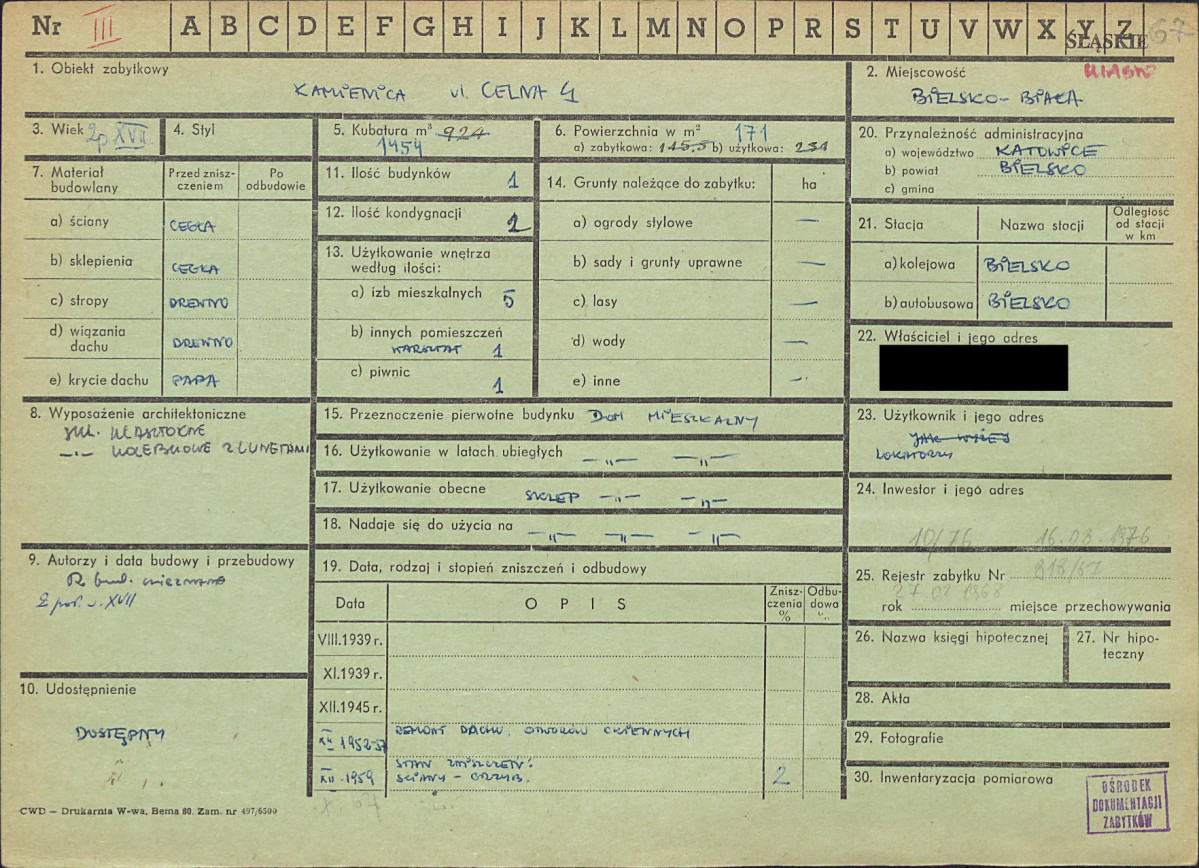 Nr III A B C D E F G H I J K L M N O P R S T U V W X Y Z 67
ŚLĄSKIE
1. Obiekt zabytkowy
KAMIENICA ul. CELNA 4
2. Miejscowość
MIASTO
BIELSKO-BIAŁA
3. Wiek 2p XVII
4. Styl
5. Kubatura m³ 924
1454
6. Powierzchnia w m² 171
a) zabytkowa: 145,5 b) użytkowa: 231
7. Materiał budowlany
Przed zniszczeniem
Po odbudowie
a) ściany CEGŁA
b) sklepienia CEGŁA
c) stropy DREWNO
d) wiązania dachu DREWNO
e) krycie dachu PAPA
8. Wyposażenie architektoniczne
skl. KLASZTORNE
—"— KOLEBKOWE Z LUNETAMI
9. Autorzy i data budowy i przebudowy
R. bud. nieznana
2 poł. w. XVII
10. Udostępnienie
DOSTĘPNY
11. Ilość budynków 1
12. Ilość kondygnacji 2
13. Użytkowanie wnętrza według ilości:
a) izb mieszkalnych 5
b) innych pomieszczeń
WARSZTAT 1
c) piwnic 1
14. Grunty należące do zabytku: ha
a) ogrody stylowe —
b) sady i grunty uprawne —
c) lasy —
d) wody —
e) inne —
15. Przeznaczenie pierwotne budynku DOM MIESZKALNY
16. Użytkowanie w latach ubiegłych —"— —"—
17. Użytkowanie obecne SKLEP —"— —"—
18. Nadaje się do użycia na —"— —"— —"—
19. Data, rodzaj i stopień zniszczeń i odbudowy
Data
OPIS
Zniszczenia %
Odbudowa %
VIII.1939 r.
XI.1939 r.
XII.1945 r.
XII 1952-57 REMONT DACHU, OTWORÓW OKIENNYCH
XII.1959 STAN ZNISZCZEŃ:
ŚCIANY - GRZYB. 2
X. 67
20. Przynależność administracyjna
a) województwo KATOWICE
b) powiat BIELSKO
c) gmina
21. Stacja
Nazwa stacji
Odległość od stacji w km
a) kolejowa BIELSKO
b) autobusowa BIELSKO
22. Właściciel i jego adres
23. Użytkownik i jego adres
JAK WYŻEJ
LOKATORZY
24. Inwestor i jego adres
10/76 16.08.1976
25. Rejestr zabytku Nr 818/67
27.02 1968
rok miejsce przechowywania
26. Nazwa księgi hipotecznej
27. Nr hipoteczny
28. Akta
29. Fotografie
30. Inwentaryzacja pomiarowa
OŚRODEK
DOKUMENTACJI
ZABYTKÓW
CWD — Drukarnia W-wa, Bema 60. Zam. nr 497/6500